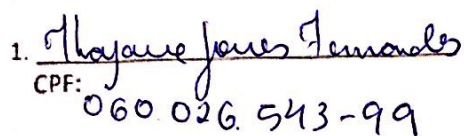 1. Thayane Jones Fernandes
CPF:
060.026.543-99